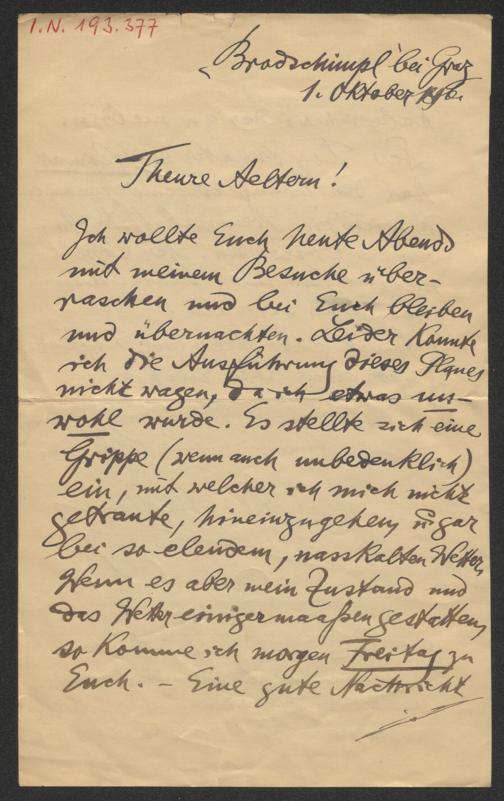 I.N. 193.377
Brodschimpl bei Graz
1. Oktober
Theure Aeltern!
Ich wollte Euch heute Abends
mit meinem Besuche über-
raschen und bei Euch bleiben
und übernachten. Leider konnte
ich die Ausführung dieses Planes
nicht wagen, da ich etwas un-
wohl wurde. Es stellte sich eine
Grippe (wenn auch unbedenklich)
ein, mit welcher ich mich nicht
getraute, hineinzugehen, u. gar
bei so elendem, nasskalten Wetter.
Wenn es aber mein Zustand und
das Wetter einigermaaßen gestatten,
so komme ich morgen Freitag zu
Euch. – Eine gute Nachricht